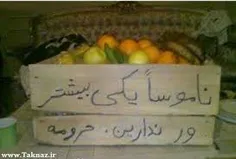 ناموساً یکی بیشتر
ور ندارین. حرومه
www.Taknaz.ir